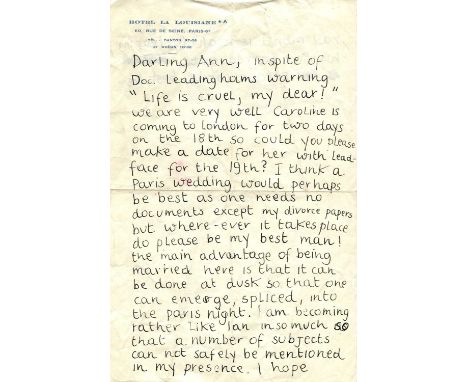 HOTEL LA LOUISIANE
60, RUE DE SEINE, PARIS-6e
Darling Ann, inspite of
Doc. Leadinghams warning
"Life is cruel, my dear!"
we are very well Caroline is
coming to london for two days
on the 18th so could you please
make a date for her with lead-
face for the 19th? I think a
Paris wedding would perhaps
be best as one needs no
documents except my divorce papers
but where-ever it takes place
do please be my best man!
the main advantage of being
married here is that it can
be done at dusk so that one
can emerge, spliced, into
the paris night. I am becoming
rather like Ian insomuch so
that a number of subjects
can not safely be mentioned
in my presence. I hope